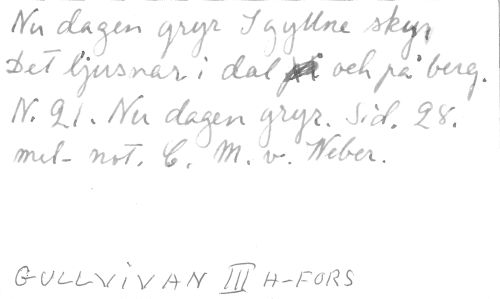 Nu dagen gryr I gyllne skyn
Det ljusnar i dal och på berg.
N. 21. Nu dagen gryr. Sid. 28.
mel- not. C. M. v. Weber.
GULLVIVAN III H-FORS